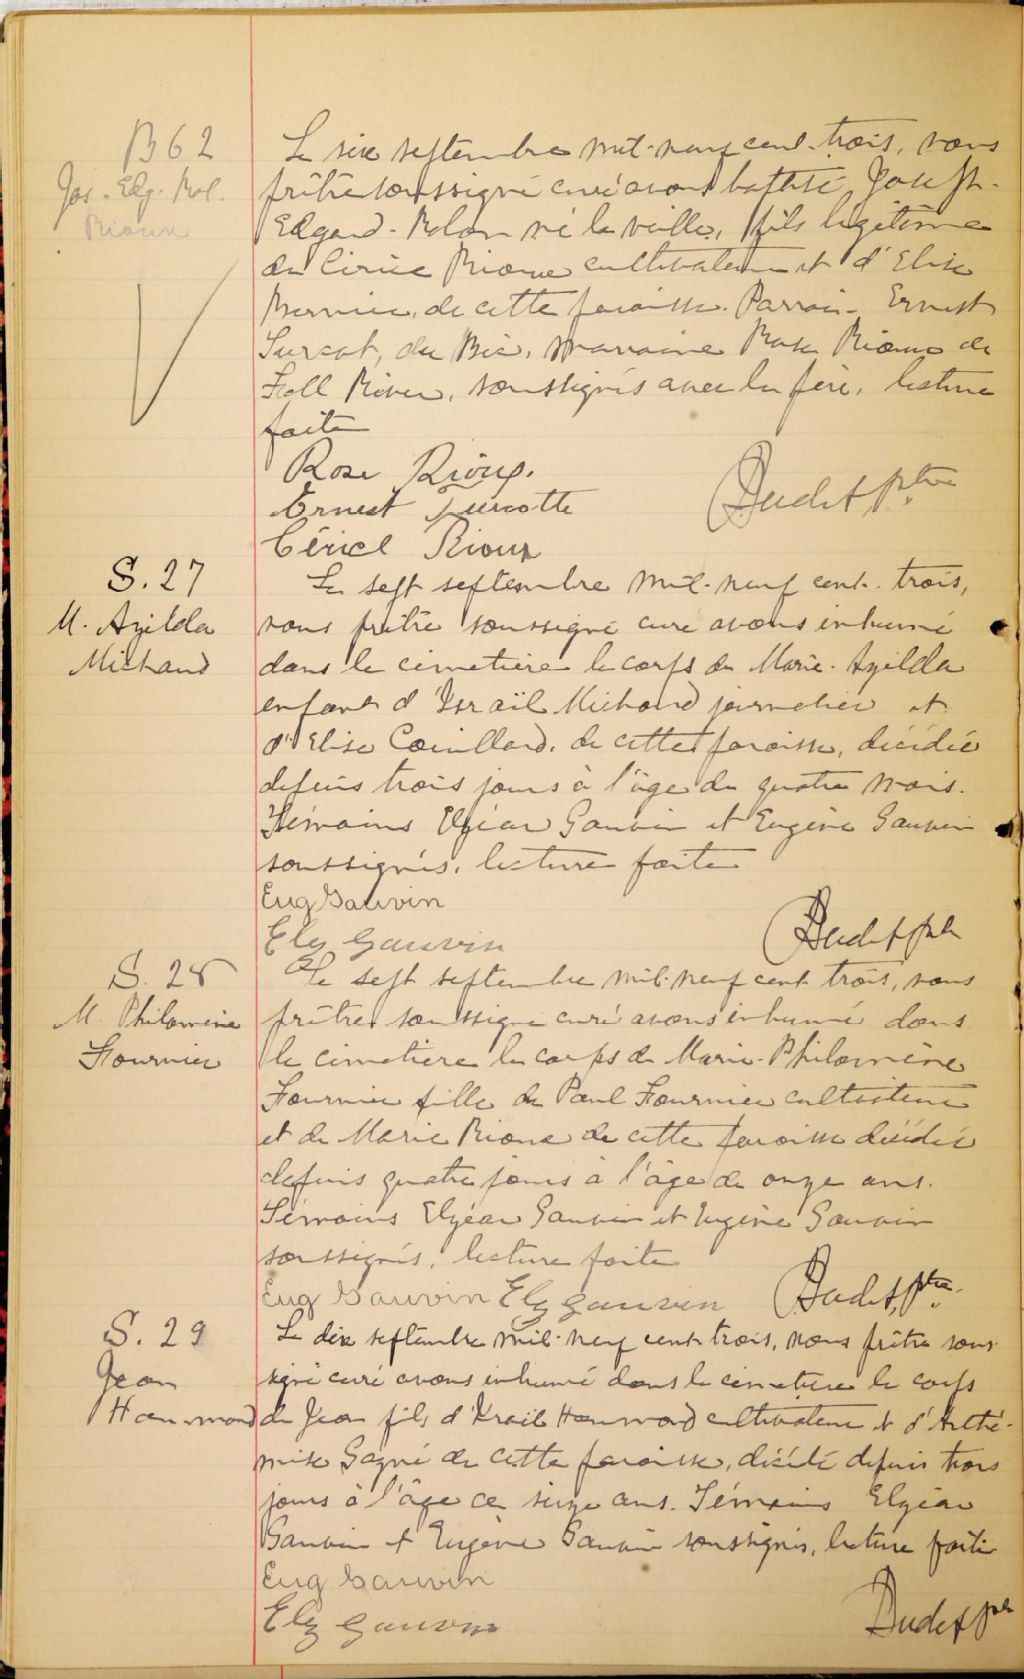 B 62
Jos. Edg. Rol.
Rioux
Le six septembre mil-neuf cent-trois, nous
prêtre soussigné curé avons baptisé Joseph-
Edgard-Rolan né la veille, fils légitime
de Cirice Rioux cultivateur et d'Elise
Bernier, de cette paroisse. Parrain Ernest
Turcot, du Bic, marraine Rose Rioux de
Fall River, soussignés avec le père, lecture
faite
Rose Rioux.
Ernest Turcotte
Céricl Rioux
Budet, ptre
S. 27
M. Azilda
Michaud
Le sept septembre mil-neuf cent-trois,
nous prêtre soussigné curé avons inhumé
dans le cimetière le corps de Marie-Azilda
enfant d'Israïl Michaud journalier et
d'Elise Couillard, de cette paroisse, décédée
depuis trois jours à l'âge de quatre mois.
Témoins Elzéar Gauvin et Eugène Gauvin
soussignés, lecture faite
Eug Gauvin
Elz Gauvin
Budet ptr
S. 28
M. Philomène
Fournier
Le sept septembre mil-neuf cent trois, nous
prêtre soussigné curé avons inhumé dans
le cimetière le corps de Marie-Philomène
Fournier fille de Paul Fournier cultivateur
et de Marie Rioux de cette paroisse décédée
depuis quatre jours à l'âge de onze ans.
Témoins Elzéar Gauvin et Eugène Gauvin
soussignés, lecture faite
Eug Gauvin Elz Gauvin Budet, ptre.
S. 29
Jean
Hammond
Le dix septembre mil-neuf cent trois, nous prêtre sous-
signé curé avons inhumé dans le cimetière le corps
de Jean fils d'Israïl Hammond cultivateur et d'Arthé-
mise Gagné de cette paroisse, décédé depuis trois
jours à l'âge de seize ans. Témoins Elzéar
Gauvin et Eugène Gauvin soussignés, lecture faite
Eug Gauvin
Elz Gauvin
Budet ptr